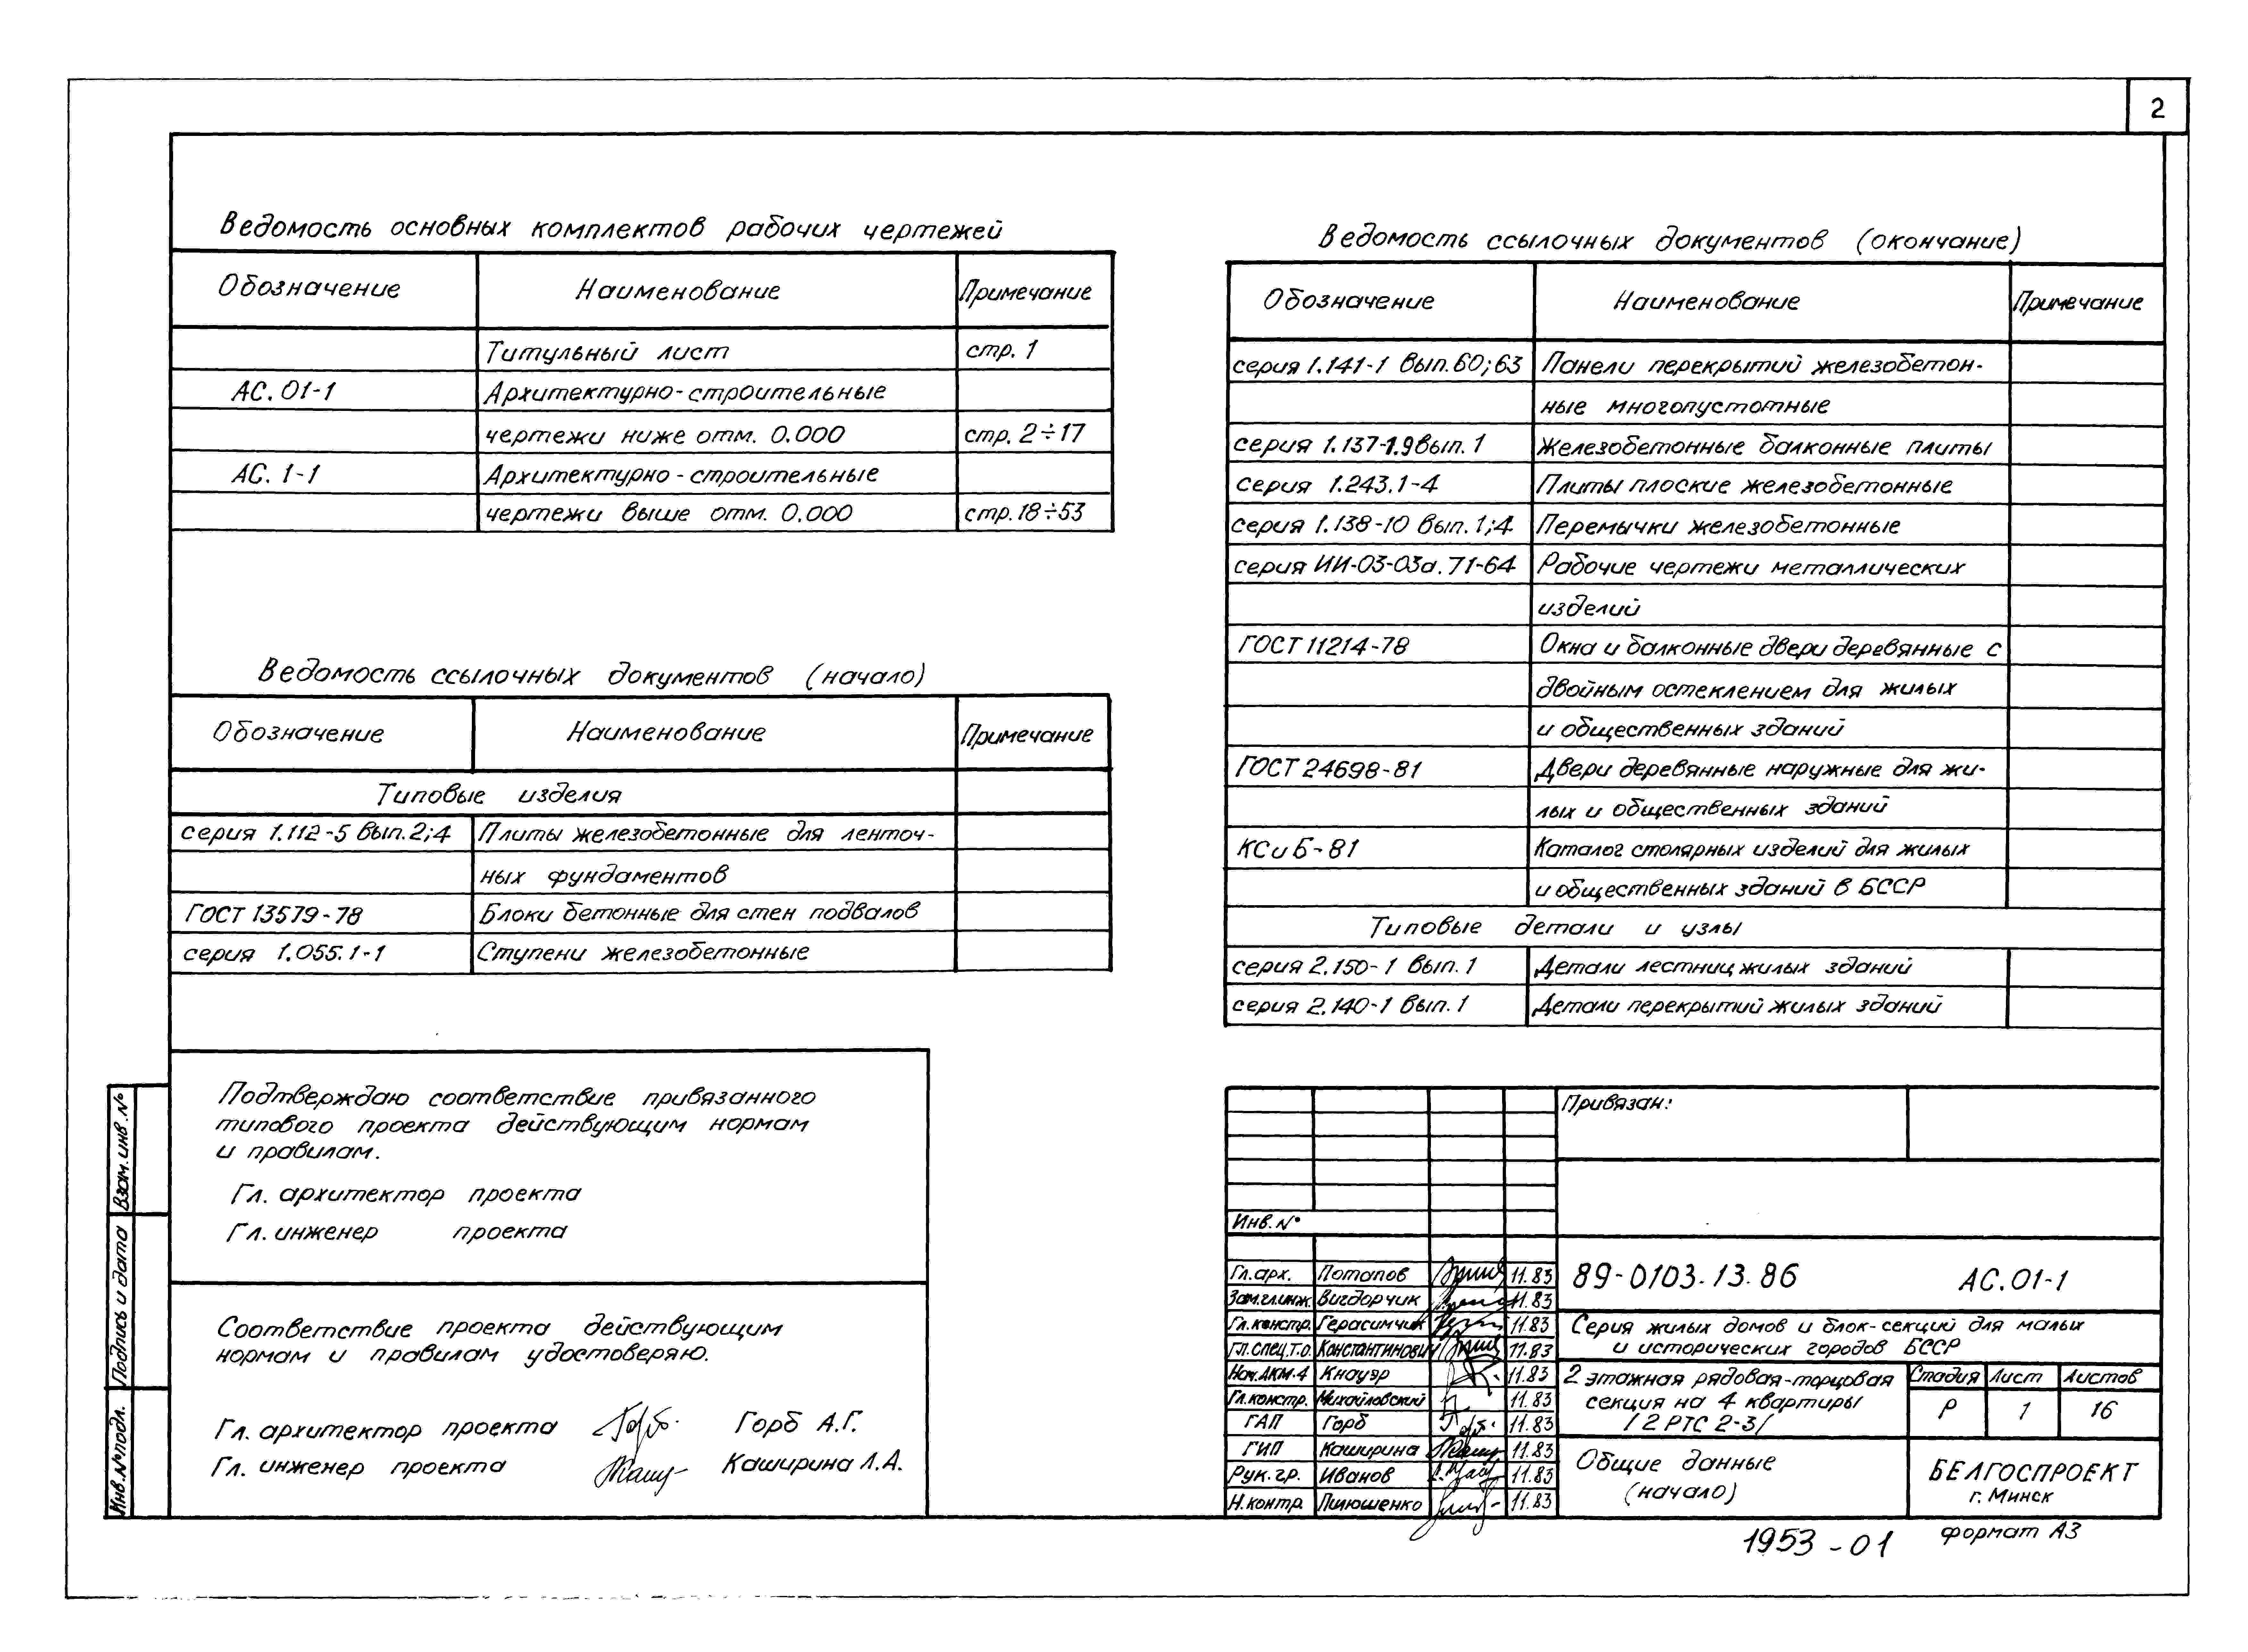 2
Ведомость основных комплектов рабочих чертежей
Обозначение Наименование Примечание
Титульный лист стр. 1
АС. 01-1 Архитектурно-строительные
чертежи ниже отм. 0.000 стр. 2÷17
АС. 1-1 Архитектурно-строительные
чертежи выше отм. 0.000 стр. 18÷53
Ведомость ссылочных документов (начало)
Обозначение Наименование Примечание
Типовые изделия
серия 1.112-5 вып.2;4 Плиты железобетонные для ленточ-
ных фундаментов
ГОСТ 13579-78 Блоки бетонные для стен подвалов
серия 1.055.1-1 Ступени железобетонные
Подтверждаю соответствие привязанного
типового проекта действующим нормам
и правилам.
Гл. архитектор проекта
Гл. инженер проекта
Соответствие проекта действующим
нормам и правилам удостоверяю.
Гл. архитектор проекта Горб А.Г.
Гл. инженер проекта Каширина Л.А.
Взам.инв.№
Подпись и дата
Инв.№подл.
Ведомость ссылочных документов (окончание)
Обозначение Наименование Примечание
серия 1.141-1 вып.60;63 Панели перекрытий железобетон-
ные многопустотные
серия 1.137-1.9 вып. 1 Железобетонные балконные плиты
серия 1.243.1-4 Плиты плоские железобетонные
серия 1.138-10 вып.1;4 Перемычки железобетонные
серия ИИ-03-03а.71-64 Рабочие чертежи металлических
изделий
ГОСТ 11214-78 Окна и балконные двери деревянные с
двойным остеклением для жилых
и общественных зданий
ГОСТ 24698-81 Двери деревянные наружные для жи-
лых и общественных зданий
КСиБ-81 Каталог столярных изделий для жилых
и общественных зданий в БССР
Типовые детали и узлы
серия 2.150-1 вып.1 Детали лестниц жилых зданий
серия 2.140-1 вып.1 Детали перекрытий жилых зданий
Привязан:
Инв.№
Гл.арх. Потапов 11.83
Зам.гл.инж. Вигдорчик 11.83
Гл.констр. Герасимчик 11.83
Гл.спец.т.о. Константинович 11.83
Нач.АКМ-4 Кнауэр 11.83
Гл.констр. Михайловский 11.83
ГАП Горб 11.83
ГИП Каширина 11.83
Рук.гр. Иванов 11.83
Н.контр. Пилюшенко 11.83
89-0103.13.86 АС.01-1
Серия жилых домов и блок-секций для малых
и исторических городов БССР
2 этажная рядовая-торцовая
секция на 4 квартиры
/2 РТС 2-3/
Стадия Лист Листов
Р 1 16
Общие данные
(начало)
БЕЛГОСПРОЕКТ
г. Минск
1953-01 формат А3